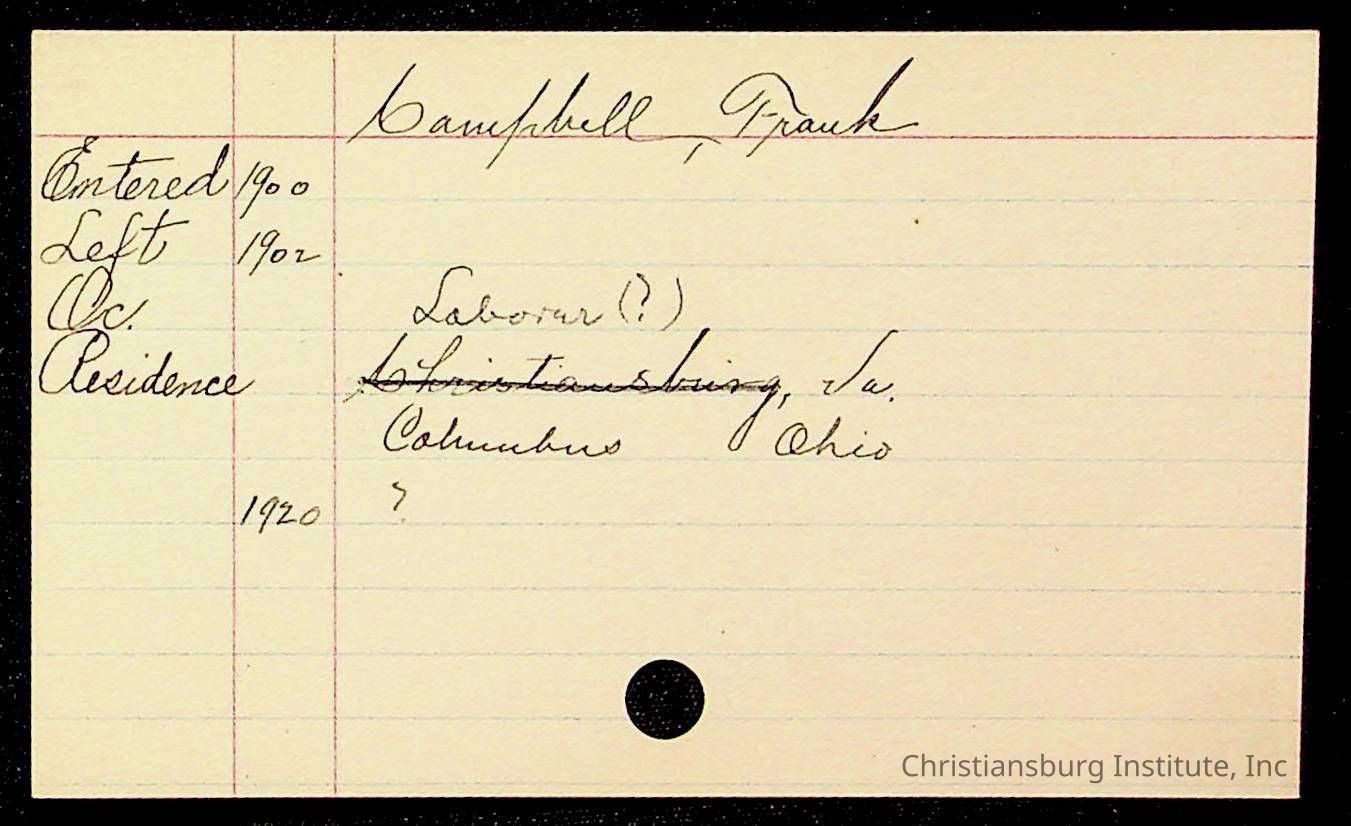 Campbell, Frank
Entered 1900
Left 1902
Oc. Laborer (?)
Residence Christiansburg, Va.
Columbus Ohio
1920 ?
Christiansburg Institute, Inc